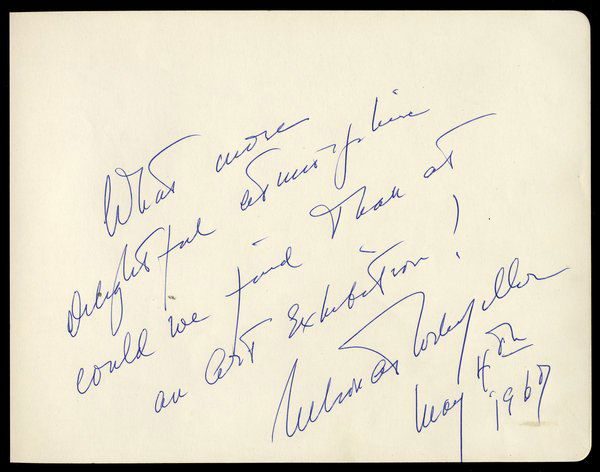 What more
delightful atmosphere
could we find than at
an Art Exhibition!
Nelson A Rockefeller
May 4th
1967